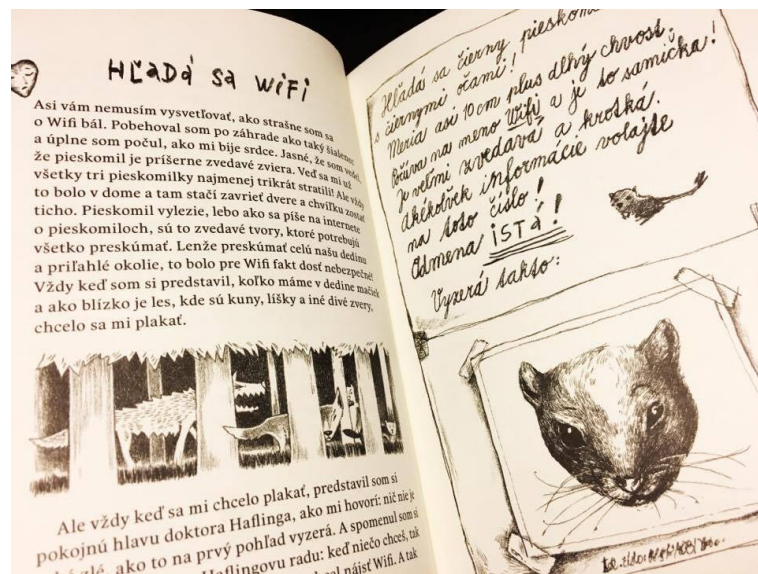 HĽADÁ SA WIFI
Asi vám nemusím vysvetľovať, ako strašne som sa
o Wifi bál. Pobehoval som po záhrade ako taký šialenec
a úplne som počul, ako mi bije srdce. Jasné, že som vedel,
že pieskomil je príšerne zvedavé zviera. Veď sa mi už
všetky tri pieskomilky najmenej trikrát stratili! Ale vždy
to bolo v dome a tam stačí zavrieť dvere a chvíľku zostať
ticho. Pieskomil vylezie, lebo ako sa píše na internete
o pieskomiloch, sú to zvedavé tvory, ktoré potrebujú
všetko preskúmať. Lenže preskúmať celú našu dedinu
a priľahlé okolie, to bolo pre Wifi fakt dosť nebezpečné!
Vždy keď som si predstavil, koľko máme v dedine mačiek
a ako blízko je les, kde sú kuny, líšky a iné divé zvery,
chcelo sa mi plakať.
Ale vždy keď sa mi chcelo plakať, predstavil som si
pokojnú hlavu doktora Haflinga, ako mi hovorí: nič nie je
zlé, ako to na prvý pohľad vyzerá. A spomenul som si
Haflingovu radu: keď niečo chceš, tak
nájsť Wifi. A tak
Hľadá sa čierny pieskomil
s čiernymi očami!
Meria asi 10 cm plus dlhý chvost.
Počúva na meno Wifi a je to samička!
Je veľmi zvedavá a krotká.
Akékoľvek informácie volajte
na toto číslo!
Odmena ISTÁ!
Vyzerá takto: